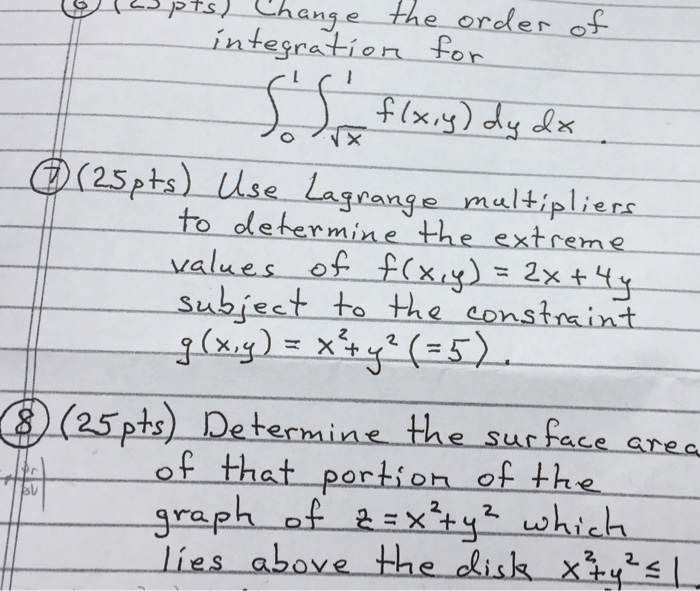 ⑥ (25 pts) Change the order of
integration for
∫₀¹ ∫_√x¹ f(x,y) dy dx .
⑦ (25pts) Use Lagrange multipliers
to determine the extreme
values of f(x,y) = 2x + 4y
subject to the constraint
g(x,y) = x² + y² (=5).
⑧ (25pts) Determine the surface area
of that portion of the
graph of z = x² + y² which
lies above the disk x² + y² ≤ 1